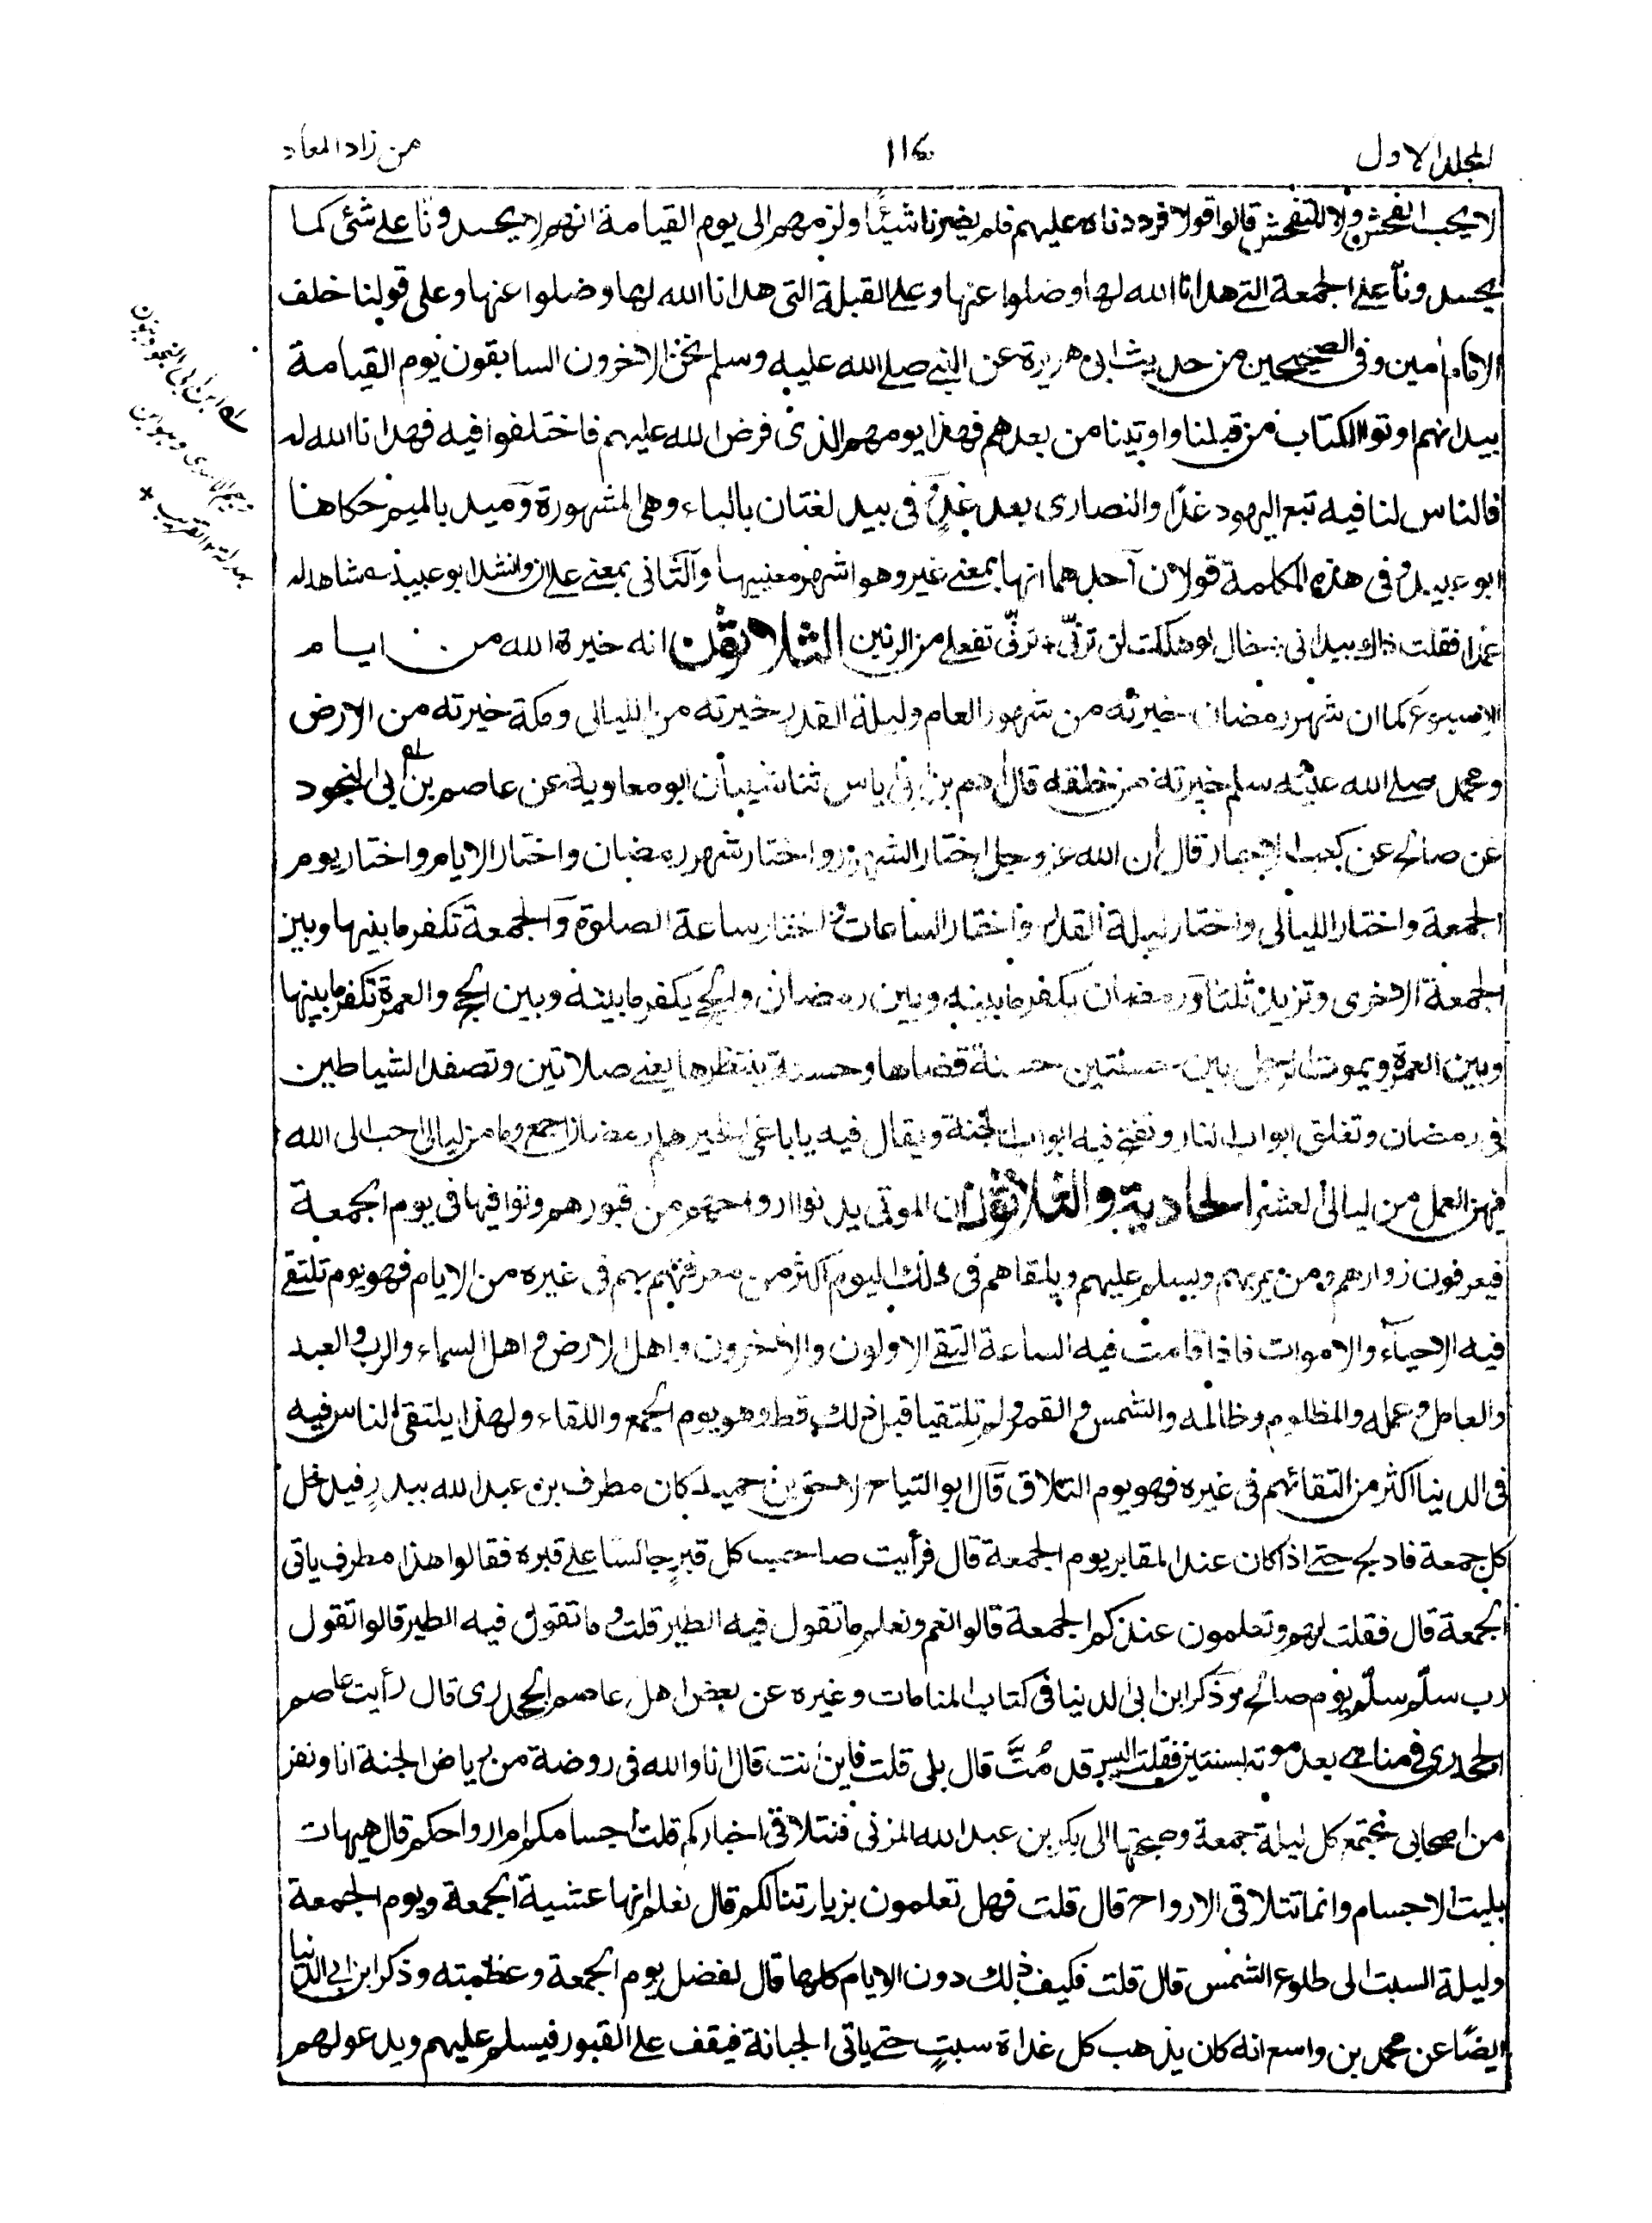 المجلد الاول
١١٤
من زاد المعاد
لا يحب الفحش ولا التفحش قالوا قولا فرددناه عليهم فلم يضرنا شيئًا ولزمهم الى يوم القيامة انهم لا يحسدوننا على شئ كما
يحسدوننا على الجمعة التى هدانا الله لها وضلوا عنها وعلى القبلة التى هدانا الله لها وضلوا عنها وعلى قولنا خلف
الامام امين وفى الصحيحين من حديث ابى هريرة عن النبى صلى الله عليه وسلم نحن الاخرون السابقون يوم القيامة
بيد انهم اوتوا الكتاب من قبلنا واوتينا من بعدهم فهذا يومهم الذى فرض الله عليهم فاختلفوا فيه فهدانا الله له
فالناس لنا فيه تبع اليهود غدًا والنصارى بعد غدٍ وفى بيد لغتان بالباء وهى المشهورة وميد بالميم حكاها
ابو عبيد وفى هذه الكلمة قولان احدهما انها بمعنى غير وهو اشهر معنييها والثانى بمعنى على وانشد ابو عبيد شاهدا له
عمدا فقلت ذاك بيد انى ؛ خال لو هلكت لن ترنّى ؛ ترنّى تفعلى من الرنين الثلاثون انه خيرة الله من ايام
الاسبوع كما ان شهر رمضان خيرته من شهور العام وليلة القدر خيرته من الليالى ومكة خيرته من الارض
ومحمد صلى الله عليه وسلم خيرته من خلقه قال ادم بن ابى اياس ثنا شيبان ابو معاوية عن عاصم بن ابى النجود
عن صالح عن كعب الاحبار قال ان الله عز وجل اختار الشهور واختار شهر رمضان واختار الايام واختار يوم
الجمعة واختار الليالى واختار ليلة القدر واختار الساعات واختار ساعة الصلوة والجمعة تكفر ما بينها وبين
الجمعة الاخرى وتزيد ثلثا ورمضان يكفر ما بينه وبين رمضان والحج يكفر ما بينه وبين الحج والعمرة تكفر ما بينها
وبين العمرة ويموت الرجل بين حسنتين حسنة قضاها وحسنة ينتظرها يعنى صلاتين وتصفد الشياطين
فى رمضان وتغلق ابواب النار وتفتح فيه ابواب الجنة ويقال فيه يا باغى الخير هلم رمضان اجمع وما من ليالى احب الى الله
فيهن العمل من ليالى العشر الحادية والثلاثون ان الموتى يدنوا ارواحهم من قبورهم وتوافيها فى يوم الجمعة
فيعرفون زوارهم ومن يمر بهم ويسلم عليهم ويلقاهم فى ذلك اليوم اكثر من معرفتهم بهم فى غيره من الايام فهو يوم تلتقى
فيه الاحياء والاموات فاذا قامت فيه الساعة التقى الاولون والاخرون واهل الارض واهل السماء والرب والعبد
والعامل وعمله والمظلوم وظالمه والشمس والقمر ولم تلتقيا قبل ذلك قط وهو يوم الجمع واللقاء ولهذا يلتقى الناس فيه
فى الدنيا اكثر من التقائهم فى غيره فهو يوم التلاق قال ابو التياح لاحق بن حميد كان مطرف بن عبد الله يبدر فيدخل
كل جمعة فادلج حتى اذا كان عند المقابر يوم الجمعة قال فرأيت صاحب كل قبرٍ جالسًا على قبره فقالوا هذا مطرف ياتى
الجمعة قال فقلت لهم وتعلمون عندكم الجمعة قالوا نعم ونعلم ما تقول فيه الطير قلت وما تقول فيه الطير قالوا تقول
رب سلّم سلّم يوم صالح وذكر ابن ابى الدنيا فى كتاب المنامات وغيره عن بعض اهل عاصم الجحدرى قال رأيت عاصم
الجحدرى فى منامى بعد موته بسنتين فقلت اليس قد مُتَّ قال بلى قلت فاين انت قال انا والله فى روضة من رياض الجنة انا ونفر
من اصحابى نجتمع كل ليلة جمعة وصبيحتها الى بكر بن عبد الله المزنى فنتلاقى اخباركم قلت اجسامكم ام ارواحكم قال هيهات
بليت الاجسام وانما تتلاقى الارواح قال قلت فهل تعلمون بزيارتنا لكم قال نعلم انها عشية الجمعة ويوم الجمعة
وليلة السبت الى طلوع الشمس قال قلت فكيف ذلك دون الايام كلها قال لفضل يوم الجمعة وعظمته وذكر ابن ابى الدنيا
ايضًا عن محمد بن واسع انه كان يذهب كل غداة سبتٍ حتى ياتى الجبانة فيقف على القبور فيسلم عليهم ويدعو لهم